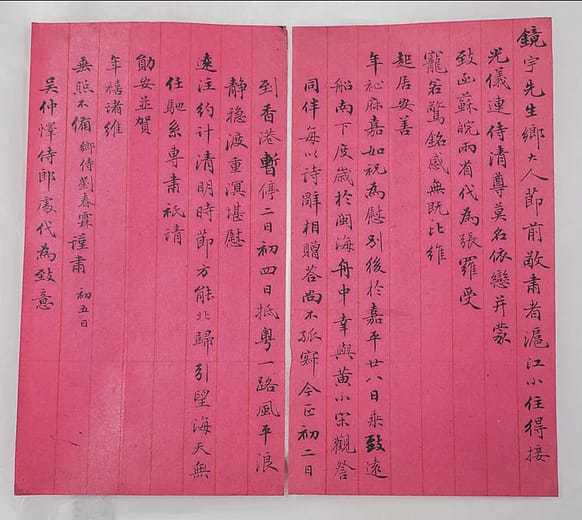 鏡宇先生鄉大人節前敬肅者滬江小住得接
光儀連侍清尊莫名依戀并蒙
致函蘇皖兩省代為張羅受
寵若驚銘感無既比維
起居安善
年祉庥嘉如祝為慰別後於嘉平廿八日乘致遠
船南下度歲於閩海舟中幸與黃小宋觀詧
同伴每以詩辭相贈答尚不孤寂今正初二日
到香港暫停二日初四日抵粵一路風平浪
靜穩渡重溟堪慰
遠注約計清明時節方能北歸引望海天無
任馳系專肅祇請
勛安並賀
年禧諸維
垂照不備鄉侍劉春霖謹肅 初五日
吳仲懌侍郎處代為致意